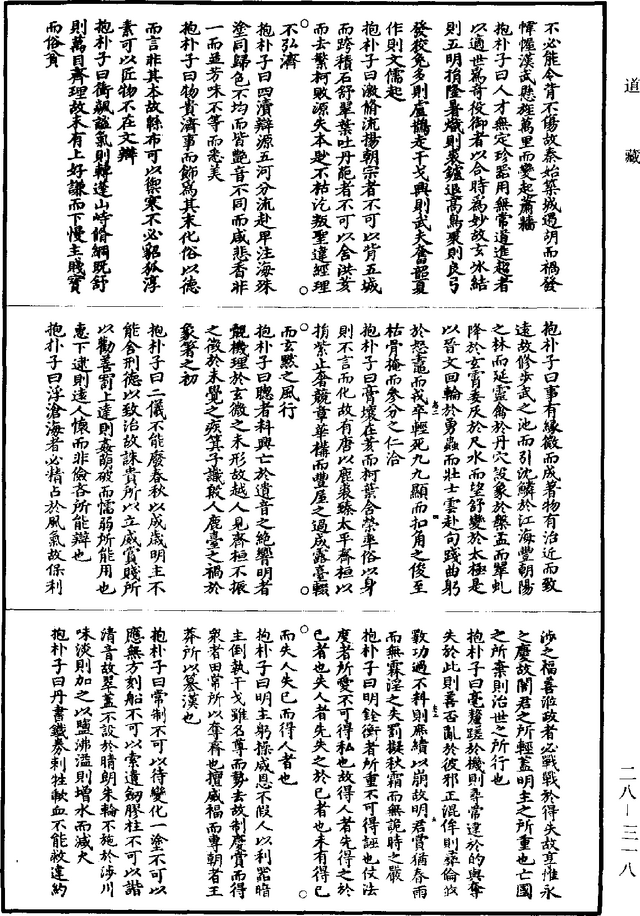 道藏
不必能令背不傷故秦始築城遏胡而禍發
幃幄漢武懸旌萬里而變起蕭牆
抱朴子曰人才無定珍器用無常道進趨者
以適世為奇役御者以合時為妙故玄冰結
則五明捐隆暑熾則裘鑪退高鳥聚則良弓
發狡兔多則盧鵲走干戈興則武夫奮韶夏
作則文儒起
抱朴子曰激脩流揚朝宗者不可以背五城
而跨積石舒翠葉吐丹葩者不可以舍洪荄
而去繁柯敗源失本尟不枯汔叛聖違經理
不弘濟
抱朴子曰四瀆辯源五河分流赴卑注海殊
塗同歸色不均而皆豔音不同而咸悲香非
一而並芳味不等而悉美
抱朴子曰物貴濟事而飾為其末化俗以德
而言非其本故緜布可以禦寒不必貂狐淳
素可以匠物不在文辯
抱朴子曰衝飆謐氣則轉蓬山峙脩綱既舒
則萬目齊理故未有上好謙而下慢主賤寶
而俗貪
抱朴子曰事有緣微而成著物有治近而致
遠故修步武之池而引沈鱗於江海豐朝陽
之林而延靈禽於丹穴設象於槃盂而翠虬
降於玄霄委灰於尺水而望舒變於太極是
以晉文回輪於勇蟲而壯士雲赴句踐曲躬
於怒鼃而戎卒輕死九九顯而扣角之俊至
枯骨掩而參分之仁洽
抱朴子曰膏壤在荄而柯葉含榮率俗以身
則不言而化故有唐以鹿裘臻太平齊桓以
捐紫止奢競章華構而豐屋之過成露臺輟
而玄默之風行
抱朴子曰聰者料興亡於遺音之絕響明者
覿機理於玄微之未形故越人見齊桓不振
之徵於未覺之疾箕子識殷人鹿臺之禍於
象箸之初
抱朴子曰二儀不能廢春秋以成歲明主不
能舍刑德以致治故誅貴所以立威賞賤所
以勸善罰上達則姦萌破而懦弱所能用也
惠下逮則遠人懷而非儉吝所能辯也
抱朴子曰浮滄海者必精占於風氣故保利
涉之福善涖政者必戰戰於得失故享惟永
之慶故闇君之所輕蓋明主之所重也亡國
之所棄則治世之所行也
抱朴子曰毫釐蹉於機則尋常違於的與奪
失於此則善否亂於彼邪正混侔則彝倫攸
斁功過不料則庶績以崩故明君賞猶春雨
而無霖淫之失罰擬秋霜而無詭時之嚴
抱朴子曰明銓衡者所重不可得誣也仗法
度者所愛不可得私也故得人者先得之於
己者也失人者先失之於己者也未有得己
而失人失己而得人者也
抱朴子曰明主躬操威恩不假人以利器暗
主倒執干戈雖名尊而勢去故制慶賞而得
衆者田常所以奪齊也擅威福而專朝者王
莽所以篡漢也
抱朴子曰常制不可以待變化一塗不可以
應無方刻船不可以索遺劒膠柱不可以諧
清音故翠蓋不設於晴朗朱輪不施於涉川
味淡則加之以鹽沸溢則增水而減火
抱朴子曰丹書鐵券刺牲歃血不能救違約
二八—三一八